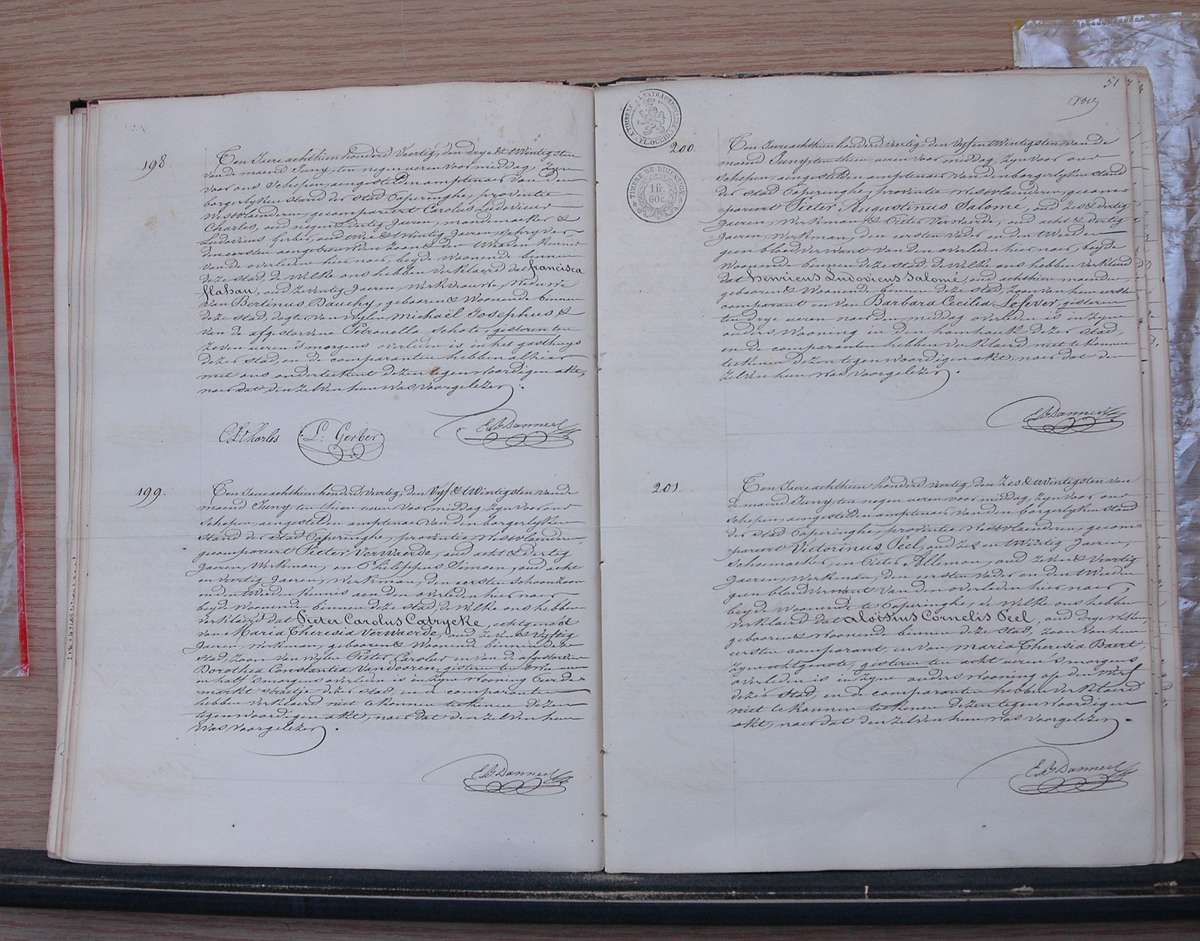 198
Ten Jaere achthien honderd veertig, den drye & twintigsten
van de maend Juny ten negen ueren voor middag, zyn
voor ons Schepen, aengestelden amptenaer van den
borgerlyken stand der Stad Poperinghe, provintie
Westvlaenderen, gecompareert Carolus Ludovicus
Charles, oud negen & dertig Jaeren
Ludovicus Gerber, oud & veertig Jaeren
den eersten den tweeden kennis
van de overleden hier naer, beyde woonende binnen
deze stad, de welke ons hebben verklaerd dat francisca
flahau, oud zeventig Jaeren, werkvrouw, weduwe
van Bertinus Bauchy, geboren & woonende binnen
deze stad, dogter van wylen Michaël Josephus &
van de afgestorvene Petronella Schots, gisteren ten
zeven ueren 's morgens overleden is in het gasthuys
dezer stad en de comparanten hebben alhier
met ons onderteekent dezen tegenwoordigen akt,
naer dat den zelven hun was voorgelezen.
C L Charles L. Gerber E. B. Dannest
199.
Ten Jaere achthien honderd veertig, den vyf & twintigsten van de
maend Juny ten thien ueren voor middag zyn voor ons
Schepen, aengestelden amptenaer van den borgerlyken
Stand der Stad Poperinghe, provintie Westvlaenderen,
gecompareert Pieter Verwaerde, oud acht & dertig
Jaeren, werkman, en Philippus Simoen, oud acht
en veertig Jaeren, werkman, den eersten schoonzoon
en den tweeden kennis aen den overleden hier naer,
beyde woonende binnen deze stad de welke ons hebben
verklaerd dat Pieter Carolus Cabrycke, echtgenoot
van Maria Theresia Verwaerde, oud zeven & vyftig
Jaeren, werkman, geboren & woonende binnen deze
stad, zoon van wylen Pieter Carolus en van de afgestorvene
Dorothea Constantia Van Dooren, gisteren ten
en half 's morgens overleden is in zyne wooning
markt straetje dezer stad, en de comparanten
hebben verklaerd niet te konnen teekenen dezen
tegenwoordigen akt, naer dat den zelven hun
was voorgelezen.
E. B. Dannest
51
200
Ten Jaere achthien honderd veertig, den vyf en twintigsten van de
maend Juny ten thien ueren voor middag, zyn voor ons
Schepen, aengestelden amptenaer van den borgerlyken stand
der Stad Poperinghe, provintie Westvlaenderen, gecom-
pareert Pieter Augustinus Salomé, oud zes & dertig
Jaeren, werkman, & Pieter oud acht & dertig
Jaeren, werkman, den eersten vader en den tweeden
geen bloedverwant van den overleden hier naer, beyde
woonende binnen deze stad, de welke ons hebben verklaerd
dat Henricus Ludovicus Salomé, oud achthien maenden
geboren & woonende binnen deze stad, zoon van hun eersten
comparant en van Barbara Cecilia Lefever, gisteren
ten drye ueren naer den middag overleden is in zyne
ouders wooning in den dezer stad,
en de comparanten hebben verklaerd niet te konnen
teekenen dezen tegenwoordigen akt, naer dat den
zelven hun was voorgelezen.
E. B. Dannest
201
Ten Jaere achthien honderd veertig den zes & twintigsten van
de maend Juny ten negen ueren voor middag zyn voor ons
Schepen, aengestelden amptenaer van den borgerlyken stand
der Stad Poperinghe, provintie Westvlaenderen, gecom-
pareert Victorinus Peel, oud zes en veertig Jaeren,
Schoemaeker, en Pieter Alleman, oud zeven & veertig
Jaeren, werkman, den eersten vader en den tweeden
geen bloedverwant van den overleden hier naer,
beyde woonende te Poperinghe, de welke ons hebben
verklaerd dat Aloisius Cornelis Peel, oud drye
geboren & woonende binnen deze stad, zoon van hun
eersten comparant, en van Maria Theresia Baert,
zyne echtgenote, gisteren ten acht ueren 's morgens
overleden is in zyne ouders wooning op den
dezer stad, en de comparanten hebben verklaerd
niet te konnen teekenen dezen tegenwoordigen
akt, naer dat den zelven hun was voorgelezen.
E. B. Dannest